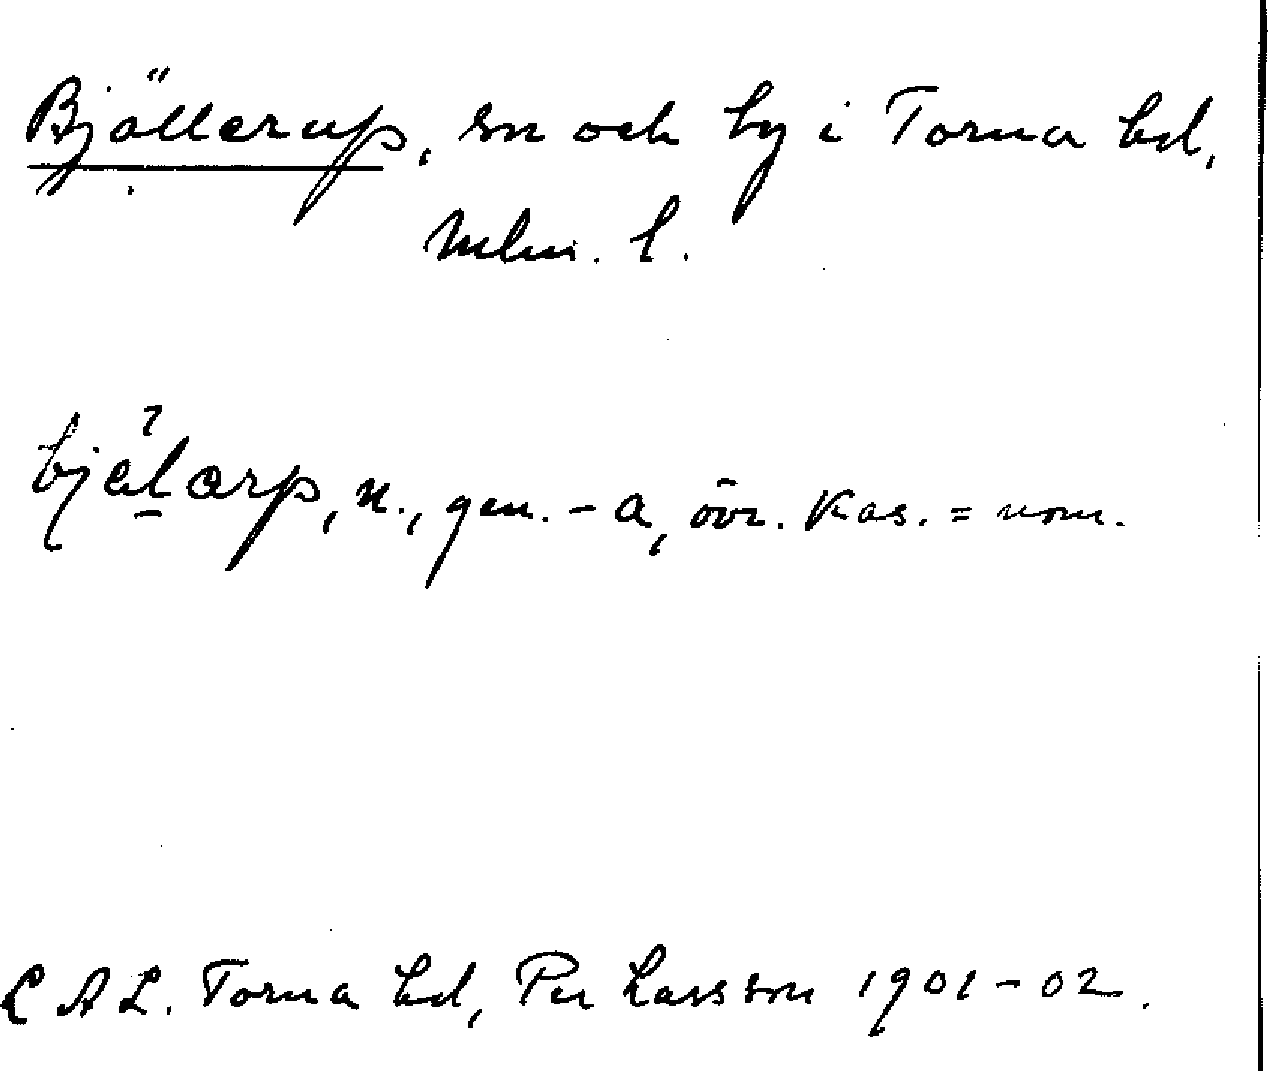 Bjällerup, sn och by i Torna hd,
Mlm. l.
bjælarp, n., gen. -a, övr. kas. = nom.
L A L. Torna hd, Per Larsson 1901-02.